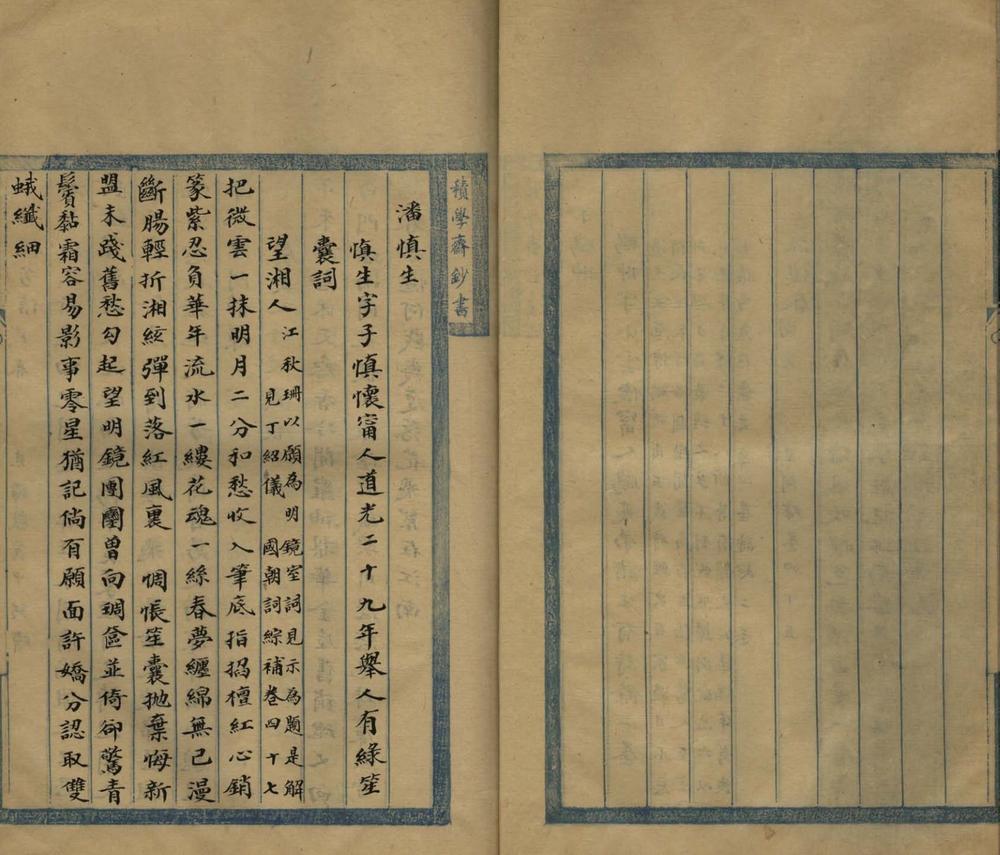 積學齋鈔書
潘慎生
慎生字子慎懷甯人道光二十九年舉人有綠笙
囊詞
望湘人 江秋珊以願為明鏡室詞見示為題是解
見丁紹儀 國朝詞綜補卷四十七
把微雲一抹明月二分和愁收入筆底指搯檀紅心銷
篆紫忍負華年流水一縷花魂一絲春夢纏綿無已漫
斷腸輕折湘絃彈到落紅風裏 惆悵笙囊拋棄悔新
盟未踐舊愁勾起望明鏡團圞曾向琱奩並倚卻驚青
鬢黏霜容易影事零星猶記倘有願面許嬌分認取雙
蛾纖細